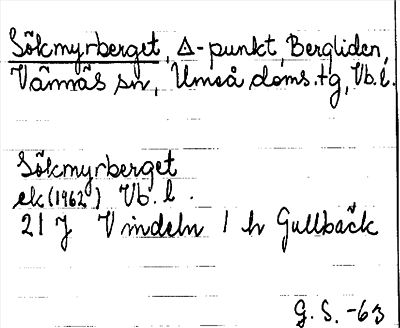 Sökmyrberget, Δ-punkt, Bergliden,
Vännäs sn, Umeå doms.tg, Vb.l.
Sökmyrberget
ek(1962) Vb.l.
21 J Vindeln 1 h Gullbäck
G.S. -63